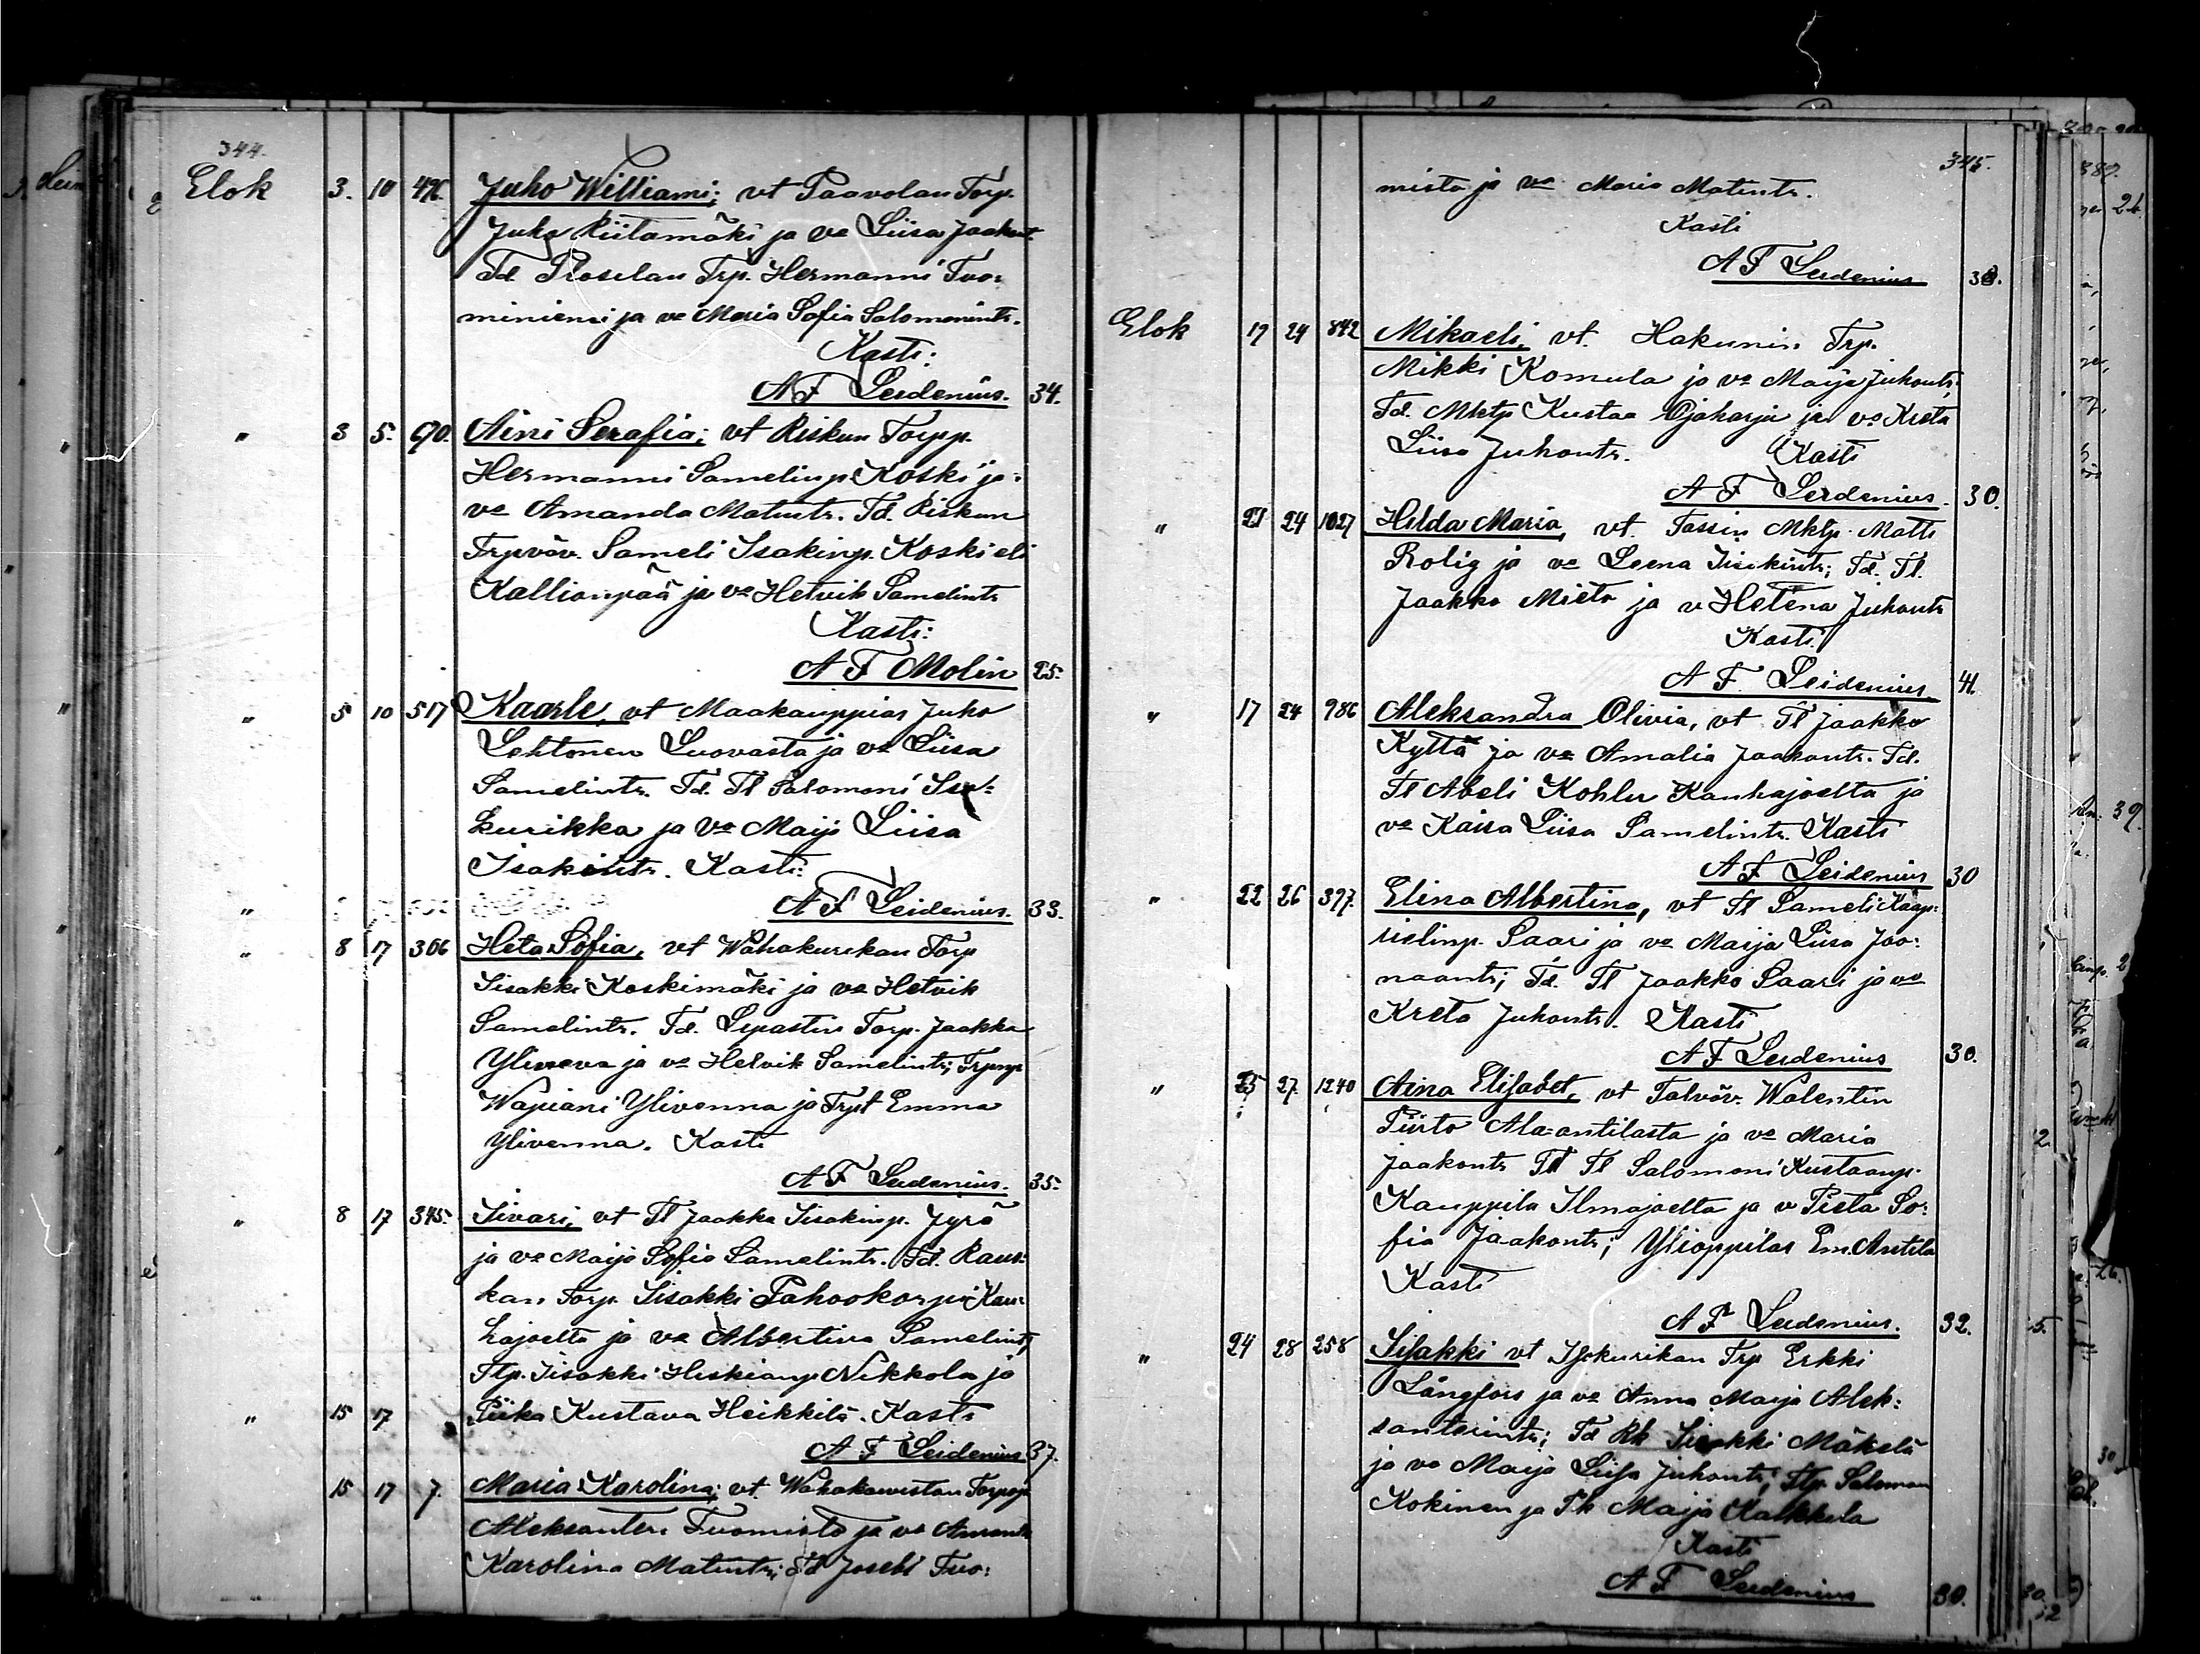 344.
Elok 3. 10 496. Juho Williami; vt Paavolan Torp.
Juho Riitamäki ja vo Liisa Jaakont.
Td. Roselan Trp. Hermanni Tuo:
miniemi ja vo Maria Sofia Salomonintr.
Kasti:
A F Leidenius. 34.
" 3 5. 690. Aini Serafia; vt Riskun Torpp.
Hermanni Samelinp. Koski ja:
vo Amanda Matintr. Td. Riskun
Trpväv. Sameli Isakinp. Koski eli
Kallionpää ja vo Hetvik Samelintr
Kasti:
A F Molin 25.
" 5 10 517 Kaarle, vt Maakauppias Juho
Lehtonen Luovasta ja vo Liisa
Samelintr. Td. Tl Salomoni Iso:
kurikka ja Vo Maija Liisa
Isakintr. Kasti:
" A F Leidenius. 33.
" 8 17 366 Heta Sofia, vt Wähäkurikan Torp
Iisakki Koskimäki ja vo Hetvik
Samelintr. Td. Torp. Jaakko
ja vo Hetvik Samelintr; Trpnp
Ylivenna ja Trpt Emma
Ylivenna. Kasti
A F Leidenius. 35.
" 8 17 345. Iivari, vt Tl Jaakko Iisakinp. Jyrä
ja vo Maija Sofia Samelintr. Td. Raus:
kan Torp. Iisakki Pahookorpi Kau:
hajoelta ja vo Albertina Samelintr,
Tlp. Iisakki Hiskianp Nikkola ja
" 15 17 Piika Kustava Heikkilä. Kasti
A F Leidenius 37.
15 17 7. Maria Karolina; vt. Torpp
Aleksanteri Tuomisto ja vo Amanda
Karolina Matintr; Td Josefi Tuo:
345.
misto ja vo Maria Matintr.
Kasti
A F Leidenius 38.
Elok 17 24 842 Mikaeli, vt. Hakunin Trp.
Mikki Komula ja vo Maija Juhontr,
Td. Mktp Kustaa Ojaharja ja vo Kreta
Liisa Juhontr. Kasti
A F Leidenius. 30.
" 21 24 1027 Hilda Maria, vt. Tassin Mktp. Matti
Rolig ja vo Leena Iisakintr; Td. Tl.
Jaakko Mieto ja v Helena Juhontr
Kasti
A F Leidenius 41.
" 17 24 986 Aleksandra Olivia, vt Tl Jaakko
Kyttä ja vo Amalia Jaakontr. Td.
Tl Abeli Kohlu Kauhajoelta ja
vo Kaisa Liisa Samelintr. Kasti
A F Leidenius 30
" 22 26 397. Elina Albertina, vt Tl Sameli Kaap:
rielinp. Saari ja vo Maija Liisa Joo:
naantr; Td. Tl Jaakko Saari ja vo
Kreta Juhontr. Kasti
A F Leidenius 30.
" 25 27. 1240 Aina Elisabet, vt Talväv. Walentin
Piirto Ala-antilasta ja vo Maria
Jaakontr Td Tl Salomoni Kustaanp.
Kauppila Ilmajoelta ja v Pieta So:
fia Jaakontr; Ylioppilas Em. Antila
Kasti
A F Leidenius. 32.
" 24 28 258 Iisakki vt Isokurikan Trp Erkki
Långfors ja vo Anna Maija Alek:
santerintr; Td Rh Iisakki Mäkelä
ja vo Maija Liisa Juhontr; Tlp. Salomon
Kokinen ja Pk Maija Kalkkela
Kasti
A F Leidenius 30.